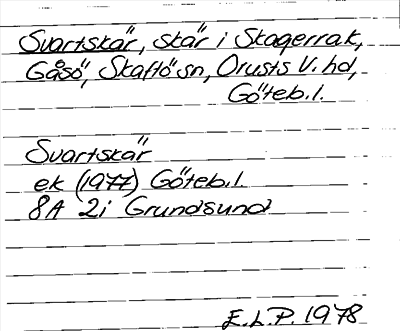 Svartskär, skär i Skagerrak,
Gåsö, Skaftö sn, Orusts V. hd,
Göteb. l.
Svartskär
ek (1977) Göteb. l.
8A 2i Grundsund
E.L.P. 1978